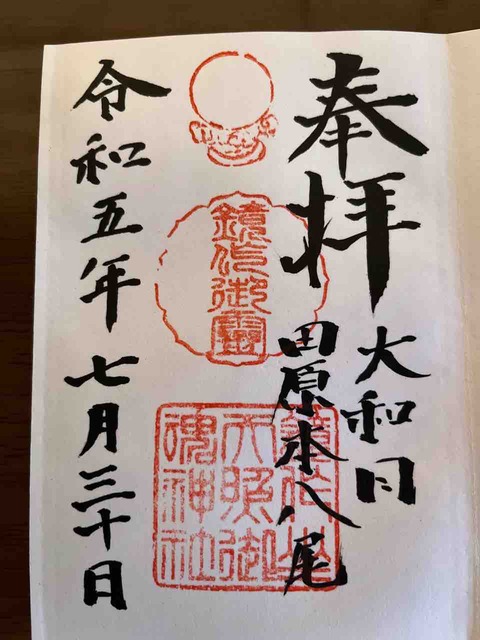 奉拝
大和国
田原本八尾
鏡作御霊
鏡作坐
天照御
魂神社
令和五年七月三十日